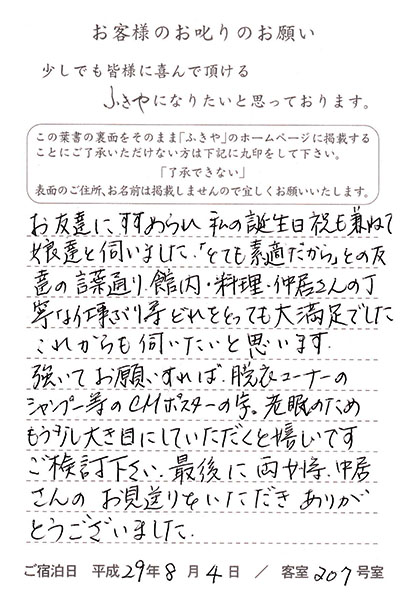 お客様のお叱りのお願い
少しでも皆様に喜んで頂ける
ふきやになりたいと思っております。
この葉書の裏面をそのまま「ふきや」のホームページに掲載する
ことにご了承いただけない方は下記に丸印をして下さい。
「了承できない」
表面のご住所、お名前は掲載しませんので宜しくお願いいたします。
お友達に、すすめられ 私の誕生日祝も兼ねて
娘達と伺いました.「とても素適だから」との友
達の言葉通り、館内・料理・仲居さんの丁
寧な仕事ぶり等どれをとっても大満足でした
これからも伺いたいと思います.
強いてお願いすれば、脱衣コーナーの
シャンプー等のCMポスターの字。老眼のため
もう少し大き目にしていただくと嬉しいです
ご検討下さい. 最後に 両女将、仲居
さんの お見送りをいただき ありが
とうございました.
ご宿泊日 平成29年8月4日 / 客室207号室